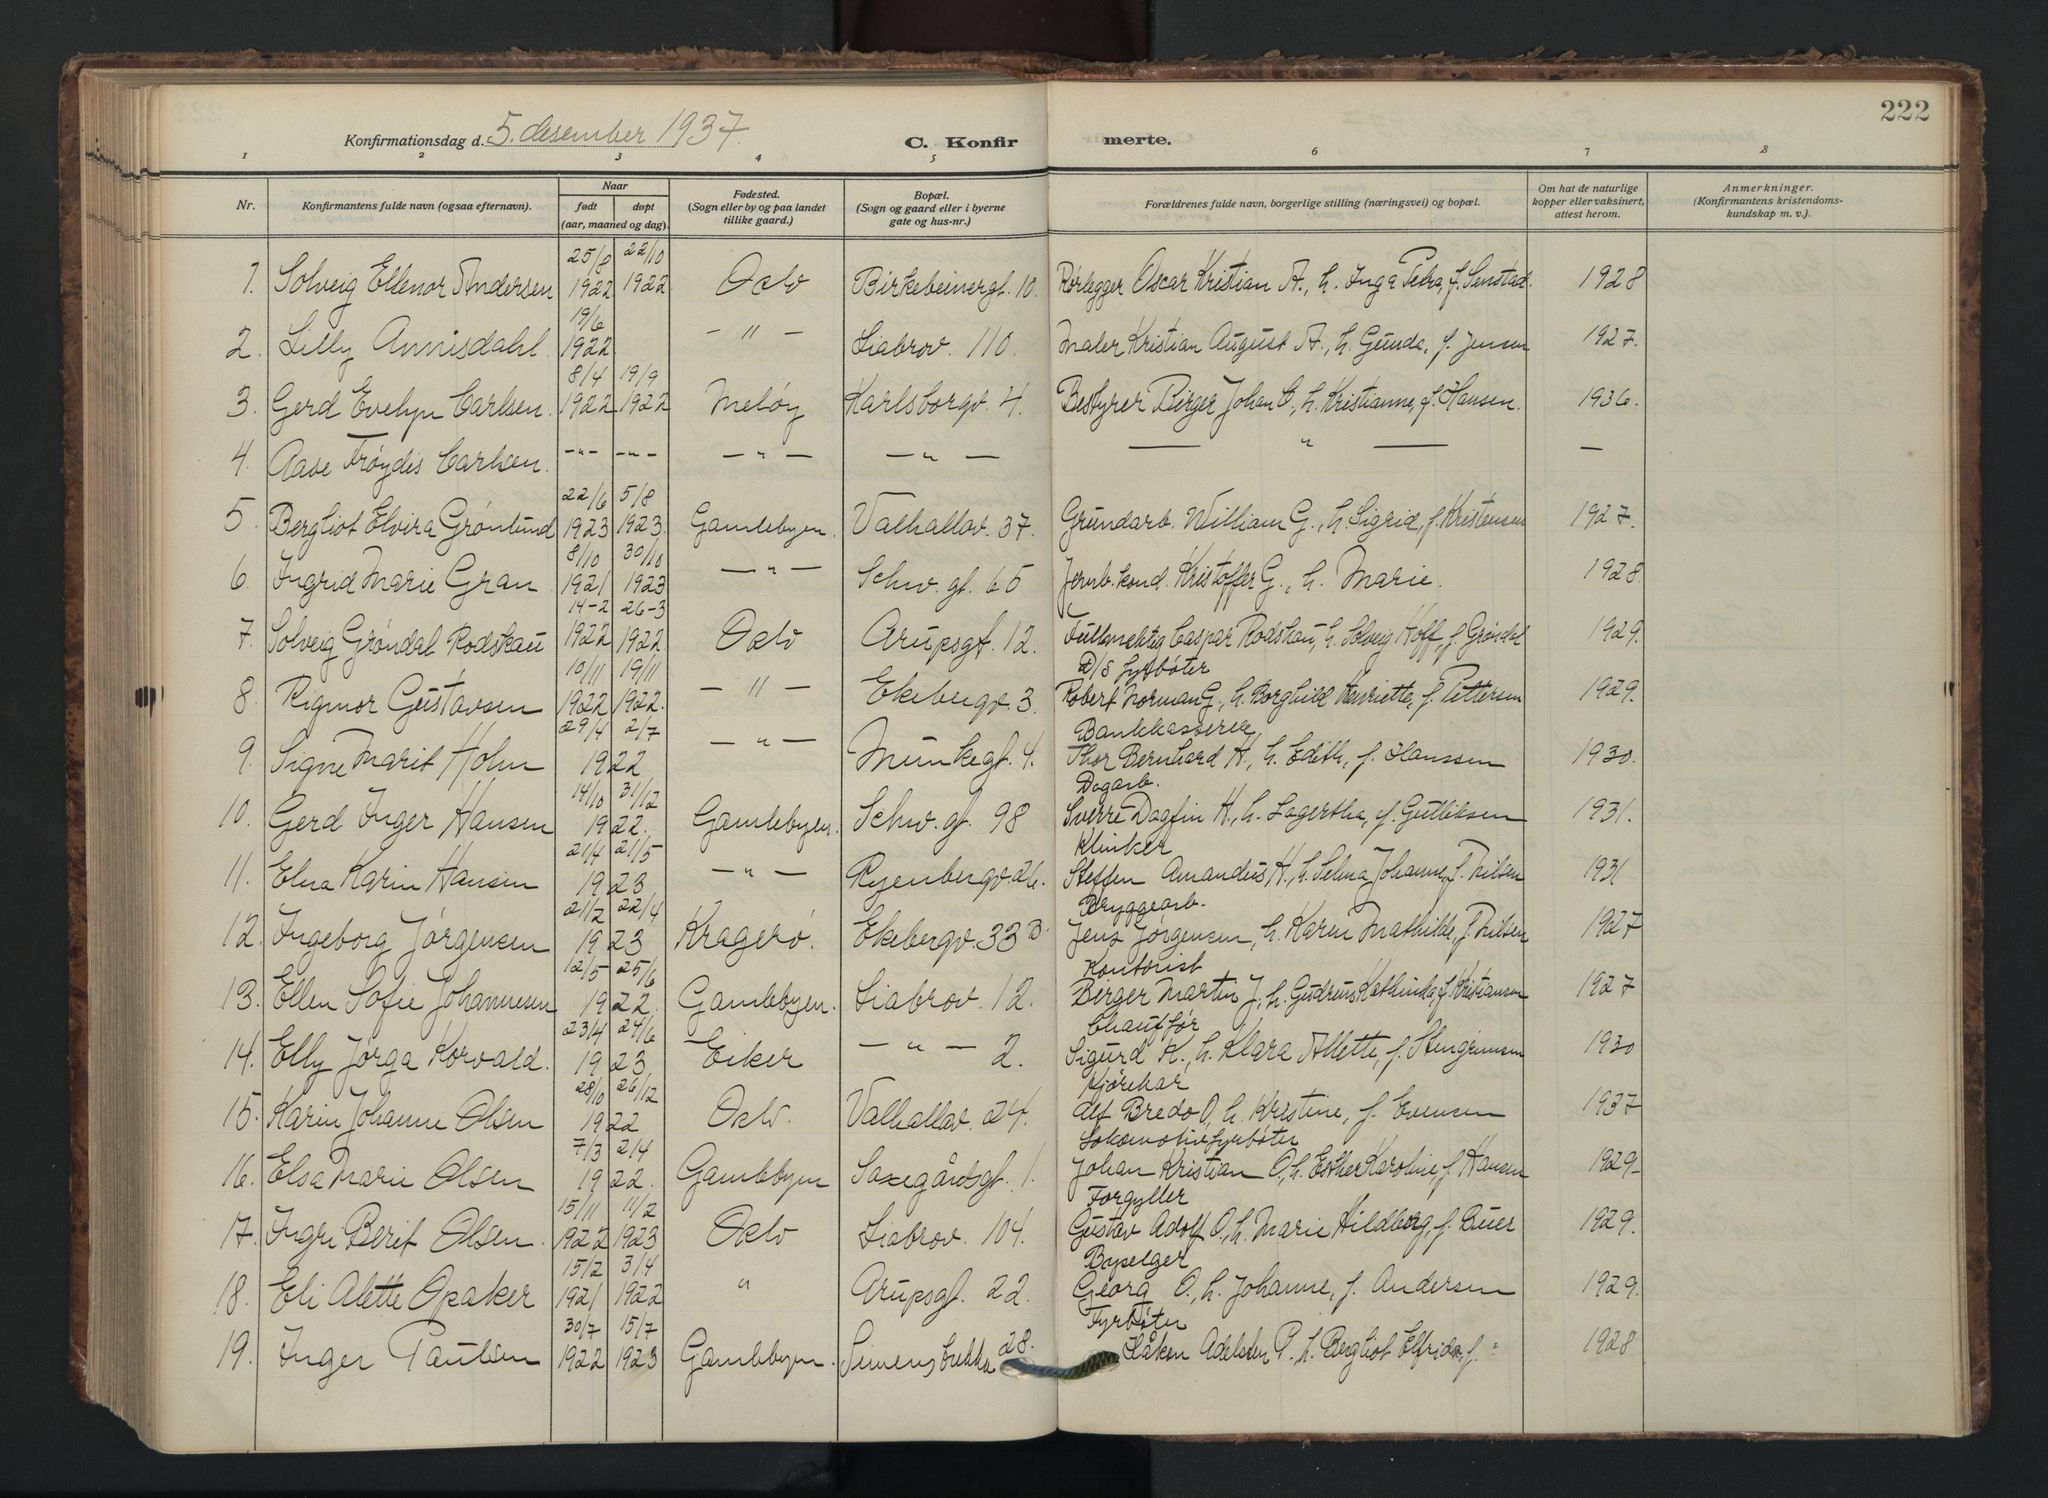 222
Konfirmationsdag d. 5. desember 1937. C. Konfirmerte.
1 2 3 4 5 6 7 8
Nr. Konfirmantens fulde navn (ogsaa efternavn). Naar født døpt (aar, maaned og dag). Fødested. (Sogn eller by og paa landet tillike gaard.) Bopæl. (Sogn og gaard eller i byerne gate og hus-nr.) Forældrenes fulde navn, borgerlige stilling (næringsvei) og bopæl. Om hat de naturlige kopper eller vaksinert, attest herom. Anmerkninger. (Konfirmantens kristendomskundskap m. v.).
1. Solveig Ellenor Andersen 25/8 1922 22/10 1922 Oslo Birkebeinergt. 10. Rørlegger Oscar Kristian A., h. Inga Petra, f. Senstad. 1928
2. Lilly Annisdahl 19/6 1922 – " – Liabrov. 110. Maler Kristian August A., h. Gunda, f. Jensen 1927.
3. Gerd Evelyn Carlsen. 8/4 1922 19/9 1922 Meløy Karlsborgv. 4. Bestyrer Birger Johan C., h. Kristianne, f. Hansen. 1936.
4. Aase Frøydis Carlsen. – " – – " – – " – – " – — " — —
5. Bergliot Elvira Grønlund 22/6 1923 5/8 1923. Gamlebyen. Valhallav. 37. Grundarb. William G., h. Sigrid, f. Kristensen 1927.
6. Ingrid Marie Gran 8/10 1921 30/10 1923 – " – Schw. gt. 65 Jernb. kond. Kristoffer G., h. Marie. 1928.
7. Solveig Grøndal Rodskau 14-2 1922 26-3 1922 Oslo Arupsgt. 12. Fullmektig Caspar Rodskau, h. Solveig Hoff, f. Grøndal 1929.
8. Rigmor Gustavsen 10/11 1922 19/11 1922. – " – Ekebergv. 3. D/S fyrbøter Robert Norman G., h. Borghild Henriette, f. Pettersen 1929.
9. Signe Marit Holm 29/4 2/7 1922 – " – Munkegt. 4. Bankkasserer Thor Bernhard H., h. Edith, f. Hanssen 1930.
10. Gerd Inger Hansen 14/10 31/12 1922. Gamlebyen. Schw. gt. 98 Dagarb. Sverre Dagfin H., h. Lagertha, f. Gulliksen 1931.
11. Elna Karin Hansen 21/4 21/5 1923 – " – Ryenbergv. 26. Klinker Steffen Amandus H., h. Selma Johanne, f. Nilsen 1931
12. Ingeborg Jørgensen 21/2 22/4 1923 Kragerø. Ekebergv. 33 B. Bryggearb. Jens Jørgensen, h. Karen Mathilde, f. Nilsen 1927
13. Ellen Sofie Johannesen 12/5 25/6 1922. Gamlebyen. Liabrov. 12. Kontorist Birger Martin J., h. Gudrun Kathinka, f. Kristiansen 1927
14. Elly Jørga Korvald. 23/4 24/6 1923 Eiker – " – 2. Chauffør Sigurd K., h. Klara Alette, f. Stengrimsen 1930
15. Karin Johanne Olsen 28/10 26/12 1922 Oslo. Valhallav. 24. Kjørekar Alf Bredo O., h. Kristine, f. Evensen 1937
16. Elsa Marie Olsen 7/3 2/4 1922. Gamlebyen Saxegårdsgt. 1. Lokomotivfyrbøter Johan Kristian O., h. Esther Karoline, f. Hansen 1929-
17. Ingri Berit Olsen. 15/11 1922 11/2 1923 Oslo Liabrov. 104. Forgyller Gustav Adolf O., h. Marie Hildborg, f. Buer 1929.
18. Eli Alette Opaker 15/2 1921 3/4 1922 " Arupsgt. 22. Byselger Georg O., h. Johanne, f. Andersen 1929.
19. Inger Paulsen 30/7 1922 15/7 1923 Gamlebyen. Simensbukka 28. Fyrbøter Håken Adelsten P., h. Bergliot Elfrida, f. " 1928